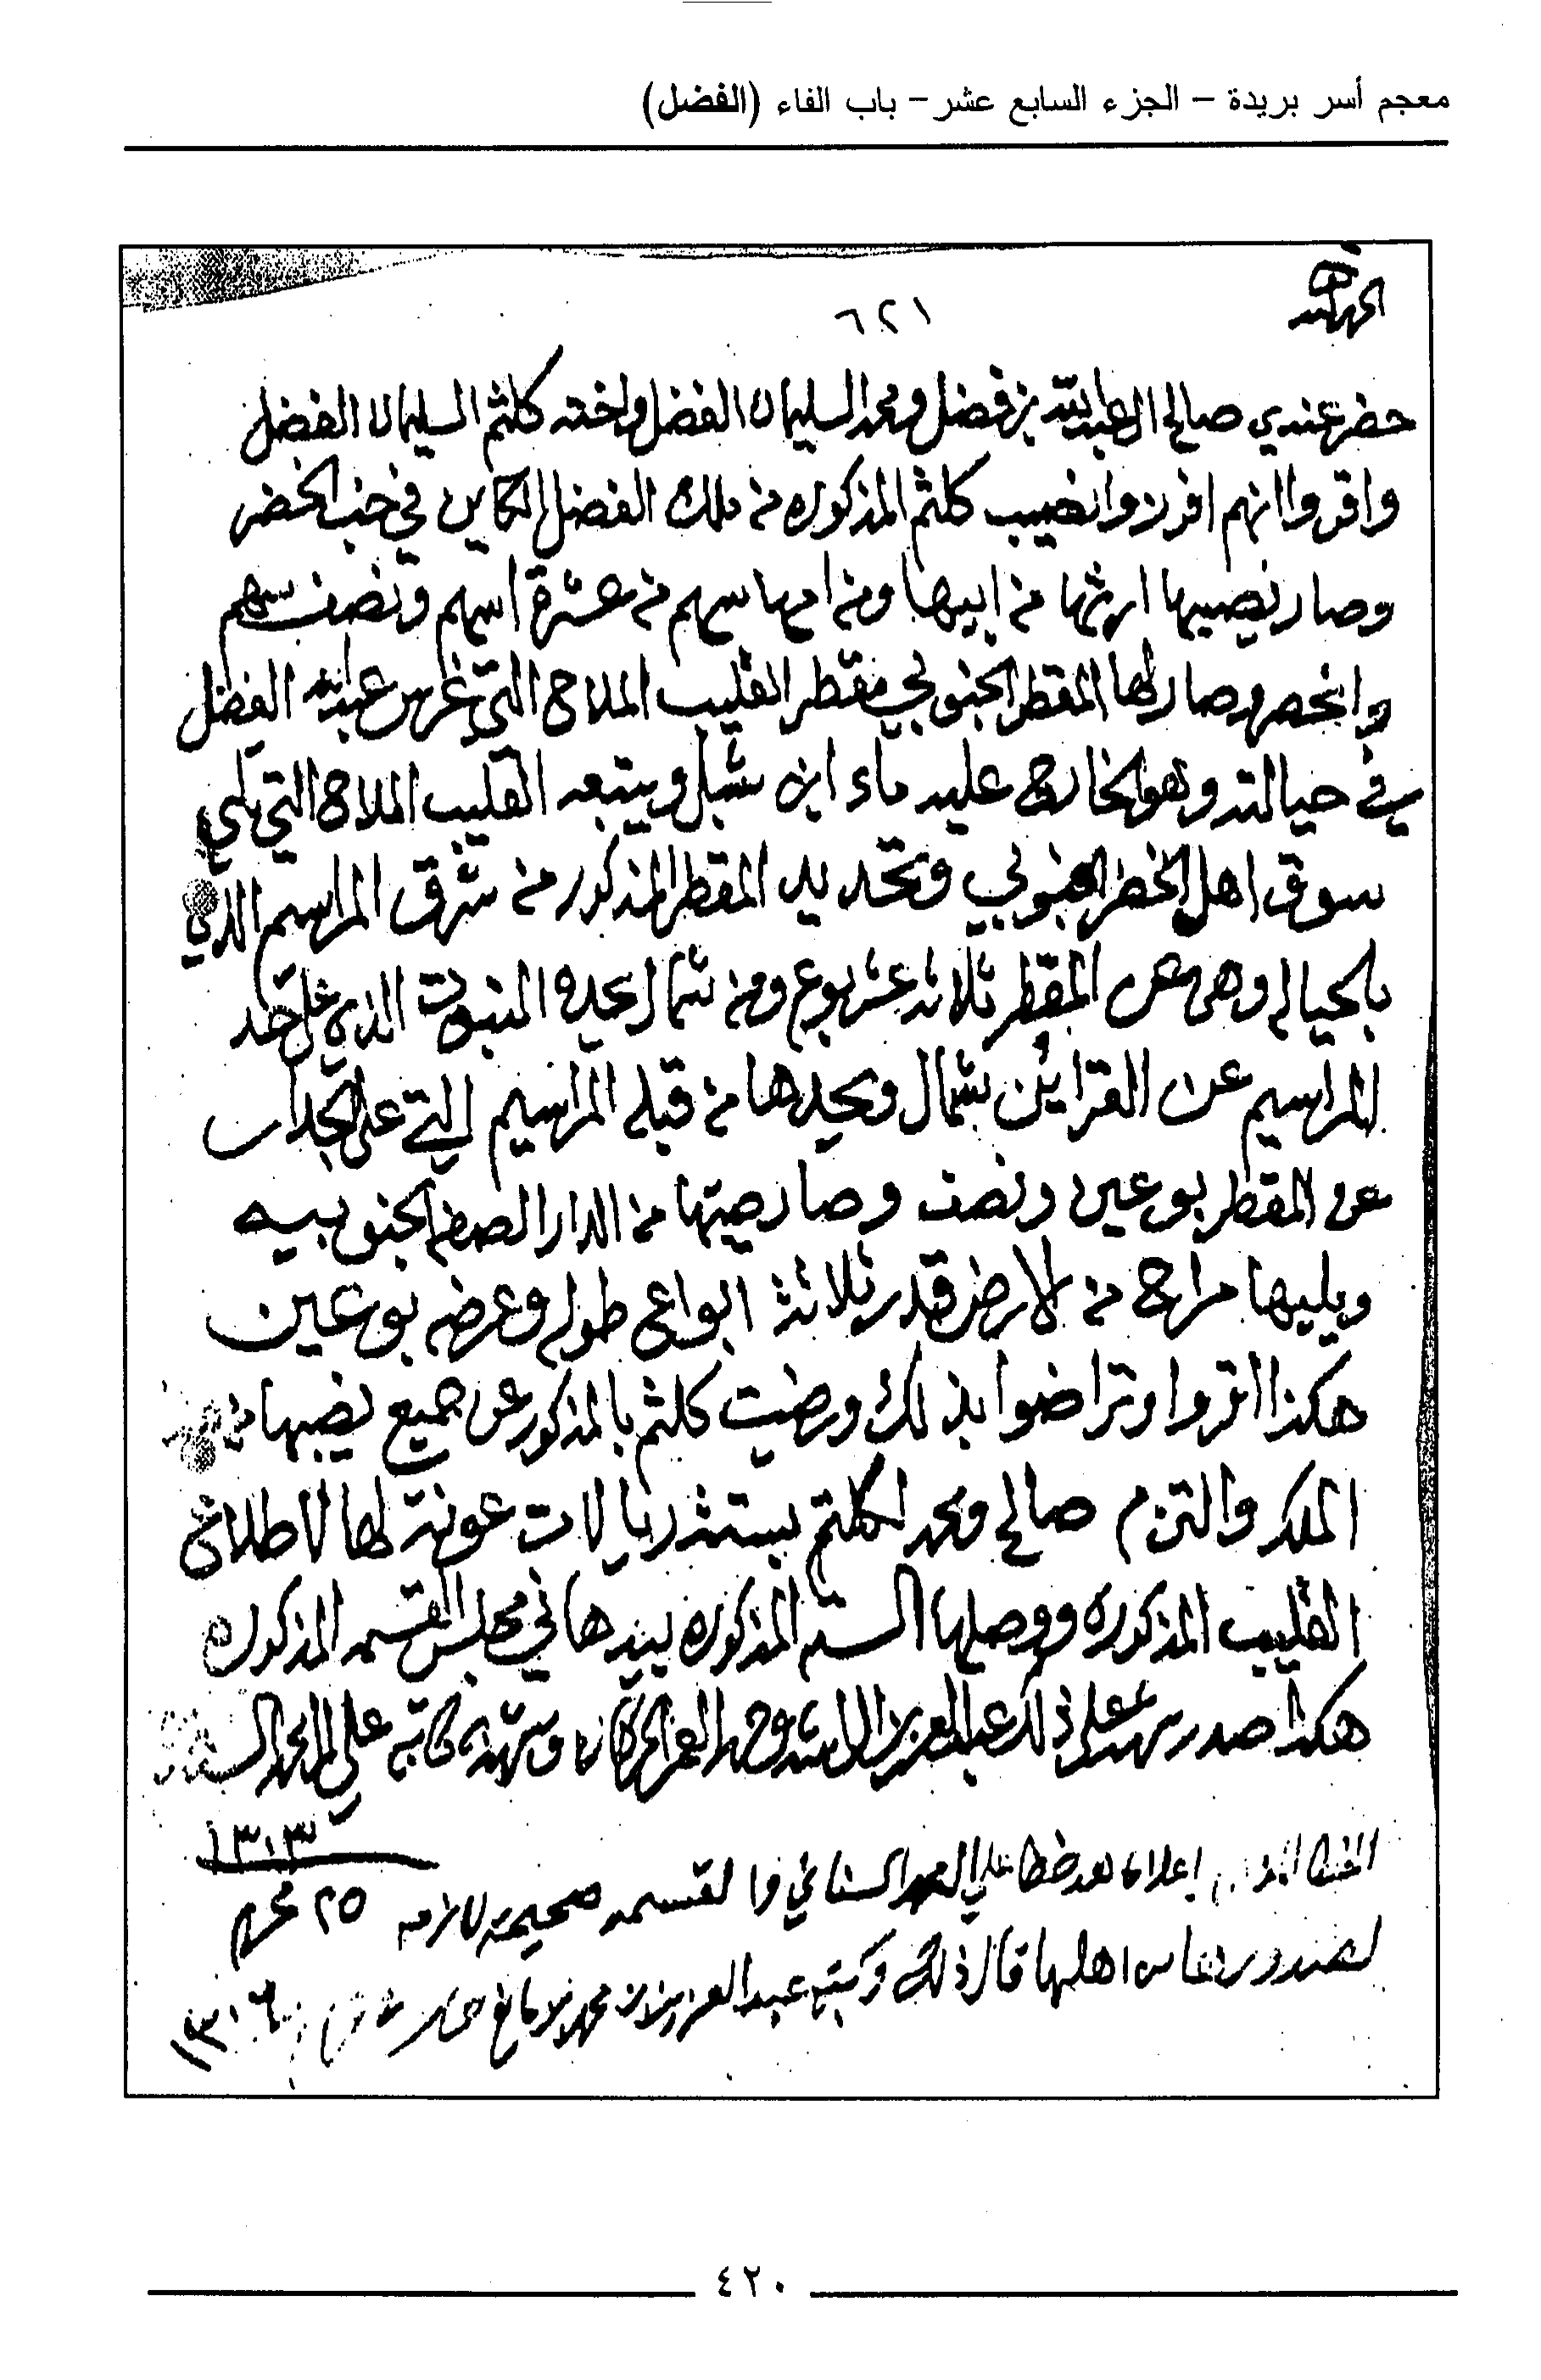 معجم أسر بريدة – الجزء السابع عشر – باب الفاء (الفضل)
الحمد لله
١٢٦
حضر عندي صالح العبدالله بن فضل ومحمد السليمان الفضل واخته كلثم السليمان الفضل
واقروا انهم افرزوا نصيب كلثم المذكوره من ملك الفضل الكاين في خب الخضر
وصار نصيبها ارثها من ابيها ومن امها سهم من عشرة اسهم ونصف سهم
وانحصر وصار لها المقطر الجنوبي مقطر القليب الملاح التي غرس عبدالله الفضل
في حيالته وهو الخارج عليه ماء ابن شبل ويتبعه القليب الملاح التي تلي
سوق اهل الخضر الجنوبي وتحديد المقطر المذكور من شرق المراسم الذي
بالحياله وهي عن المقطر ثلاثة عشر بوع ومن شمال يحده النبوت الذي على حد
المراسيم عن القراين بشمال ويحدها من قبله المراسيم التي على الجدار
عن المقطر بوعين ونصف وصار صيتها من الدار الصفه الجنوبيه
ويليها مراح من الارض قدر ثلاثة ابواع طوله وعرضه بوعين
هكذا اقروا وتراضوا بذلك ورضيت كلثم بالمذكور عن جميع نصيبها من
الملك والتزم صالح ومحمد لكلثم بستة ريالات عونة لها لاطلاع
القليب المذكوره ووصلها الستة المذكوره بيدها في مجلس القسمه المذكوره
هكذا صدر شهد على ذلك عبدالعزيز وشهد به كاتبه علي المحمد
١٣٠٣
الخط اعلاه هو خط علي المحمد السناني والقسمه صحيحة لازمه ٢٥ محرم
لصدورها من اهلها قال ذلك وكتبه عبدالعزيز بن محمد بن مانع ١٣٠٦
٤٢٠